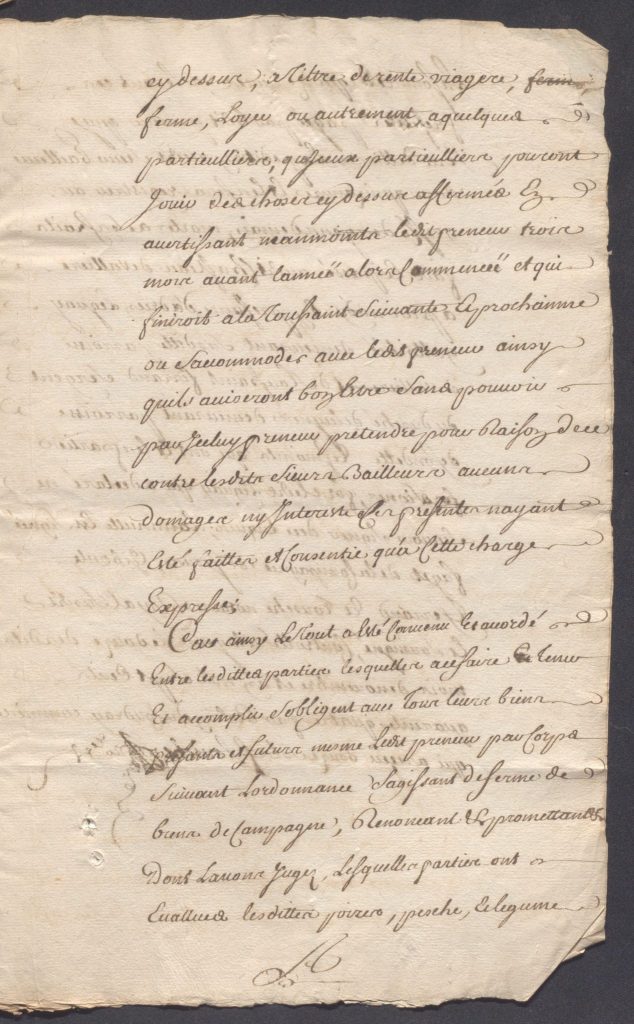 cy dessus, a tiltre de rente viagere, ferme
ferme, Loyer ou autrement, a quelques
particulliers, qu'iceux particulliers pouront
Jouir des choses cy dessus affermés En
avertissant neanmoints ledit preneur trois
mois avant l'année alors Commencée et qui
finiroit a la Toussaint Suivante & prochainne
ou Sacommoder avec ledit preneur ainsy
quils aviseront bon Estre Sans pouvoir
par Iceluy preneur pretendre pour Raison de ce
contre lesdits Sieurs Bailleurs aucuns
Domages ny Interests Ces presentes nayant
Esté faittes et Consentie qua Cette charge
Expresse;
Car ainsy Le Tout a Esté Convenu Et acordé
Entre lesdittes parties lesquelles a ce faire Et Tenir
Et accomplir Sobligent avec Tous leurs biens
presants et futurs mesme Ledit preneur par Corps
Suivant Lordonnance Sagissant de ferme de
biens de Campagne, Renoncant & promettants
Dont Lavons Jugez, Lesquelles parties ont
Evallués lesdittes poires, pesche, & legume